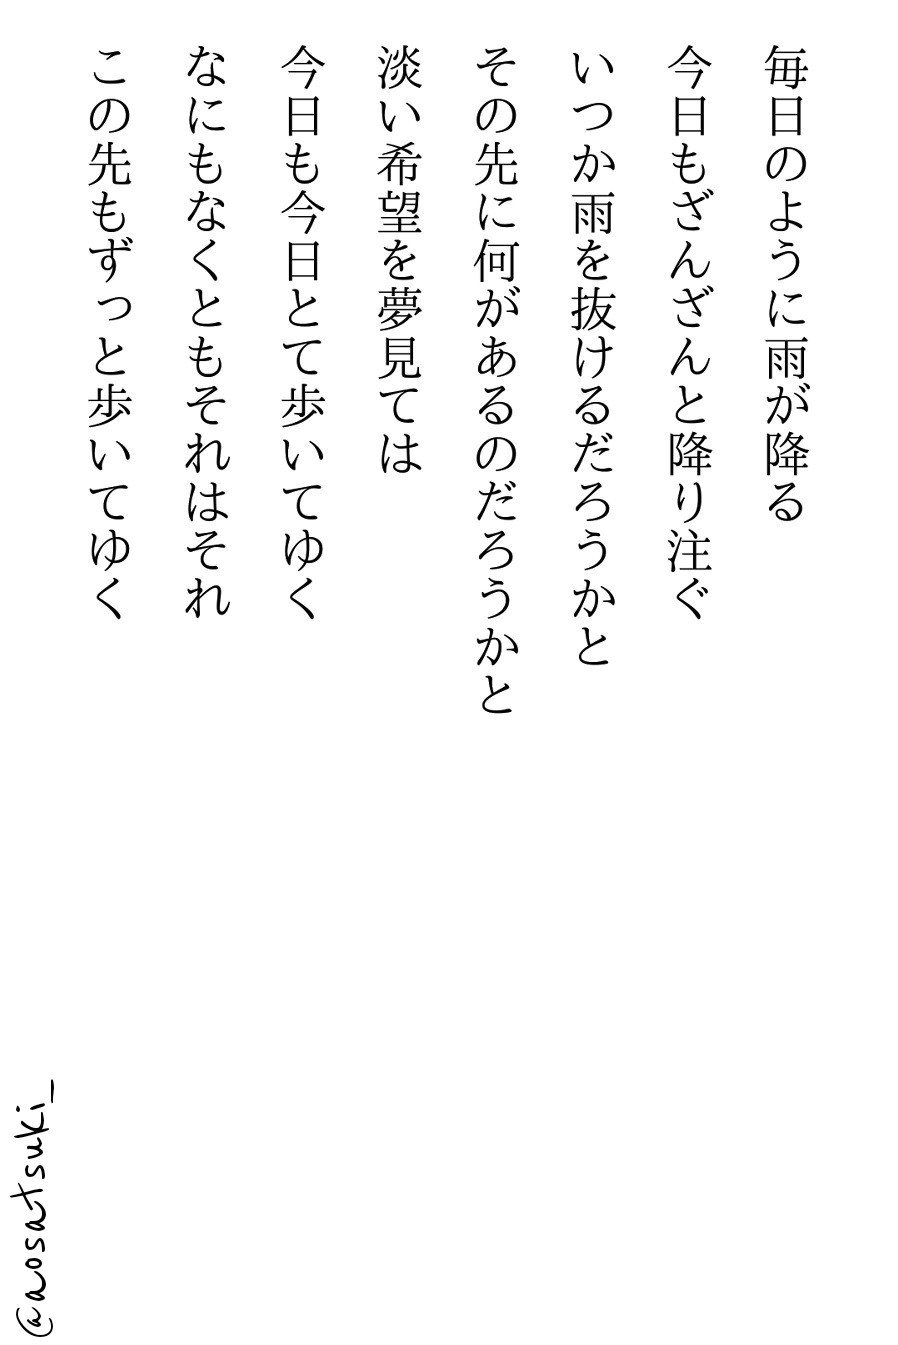 毎日のように雨が降る
今日もざんざんと降り注ぐ
いつか雨を抜けるだろうかと
その先に何があるのだろうかと
淡い希望を夢見ては
今日も今日とて歩いてゆく
なにもなくともそれはそれ
この先もずっと歩いてゆく
@aosatsuki_